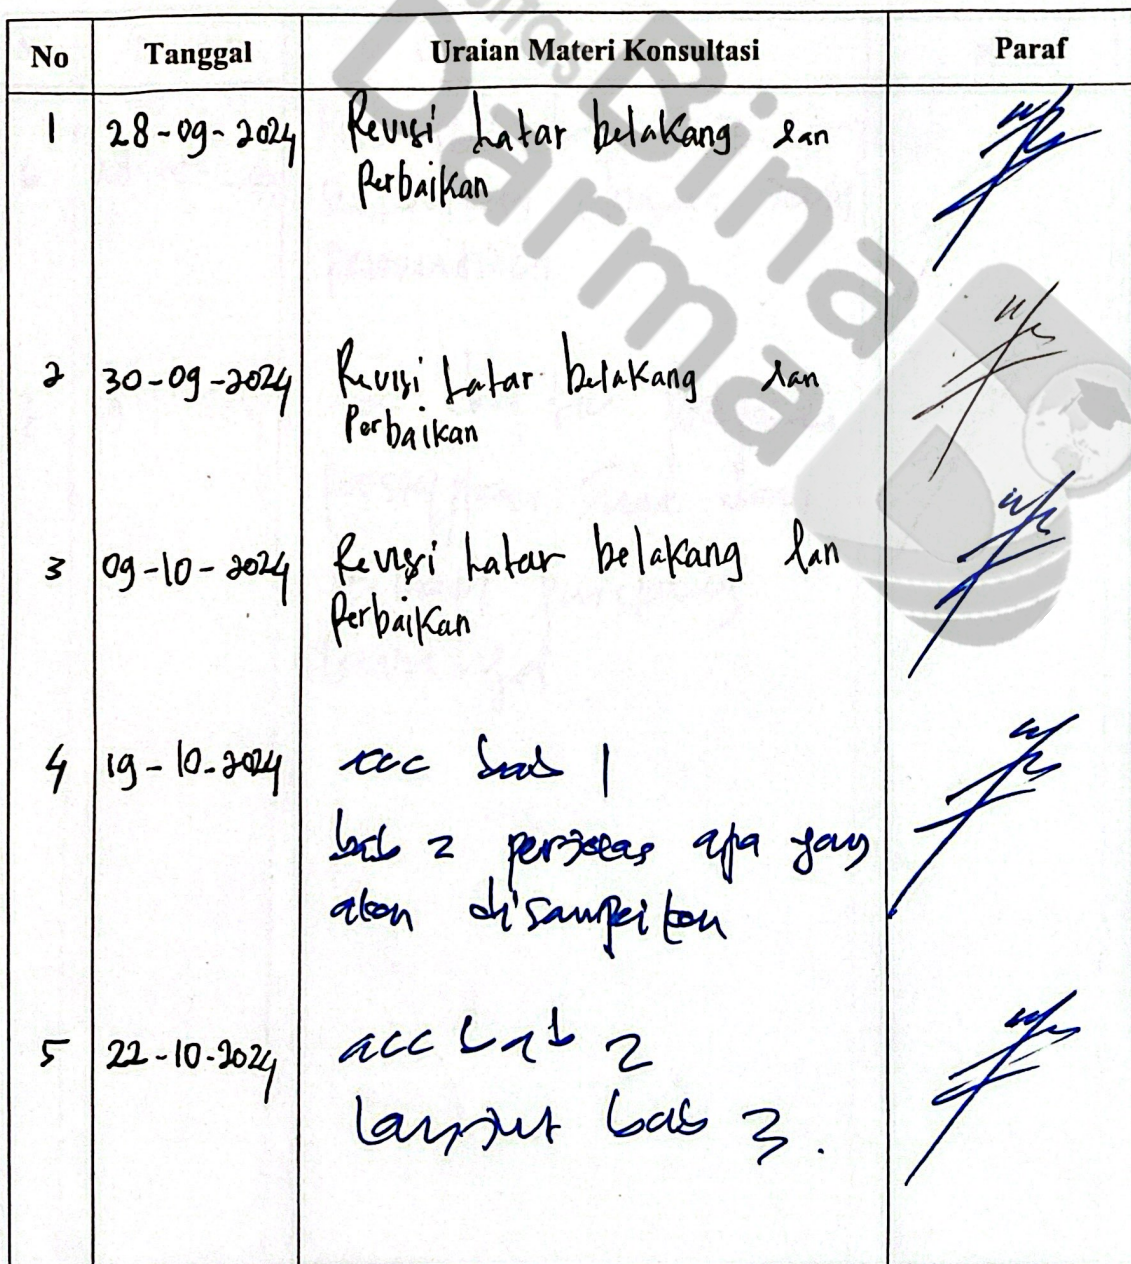 No Tanggal Uraian Materi Konsultasi Paraf
1 28-09-2024 Revisi Latar belakang dan
Perbaikan
2 30-09-2024 Revisi Latar belakang dan
Perbaikan
3 09-10-2024 Revisi Latar belakang dan
Perbaikan
4 19-10-2024 acc bab 1
bab 2 perjelas apa yang
akan disampaikan
5 22-10-2024 acc bab 2
lanjut bab 3.
Bina
Darma